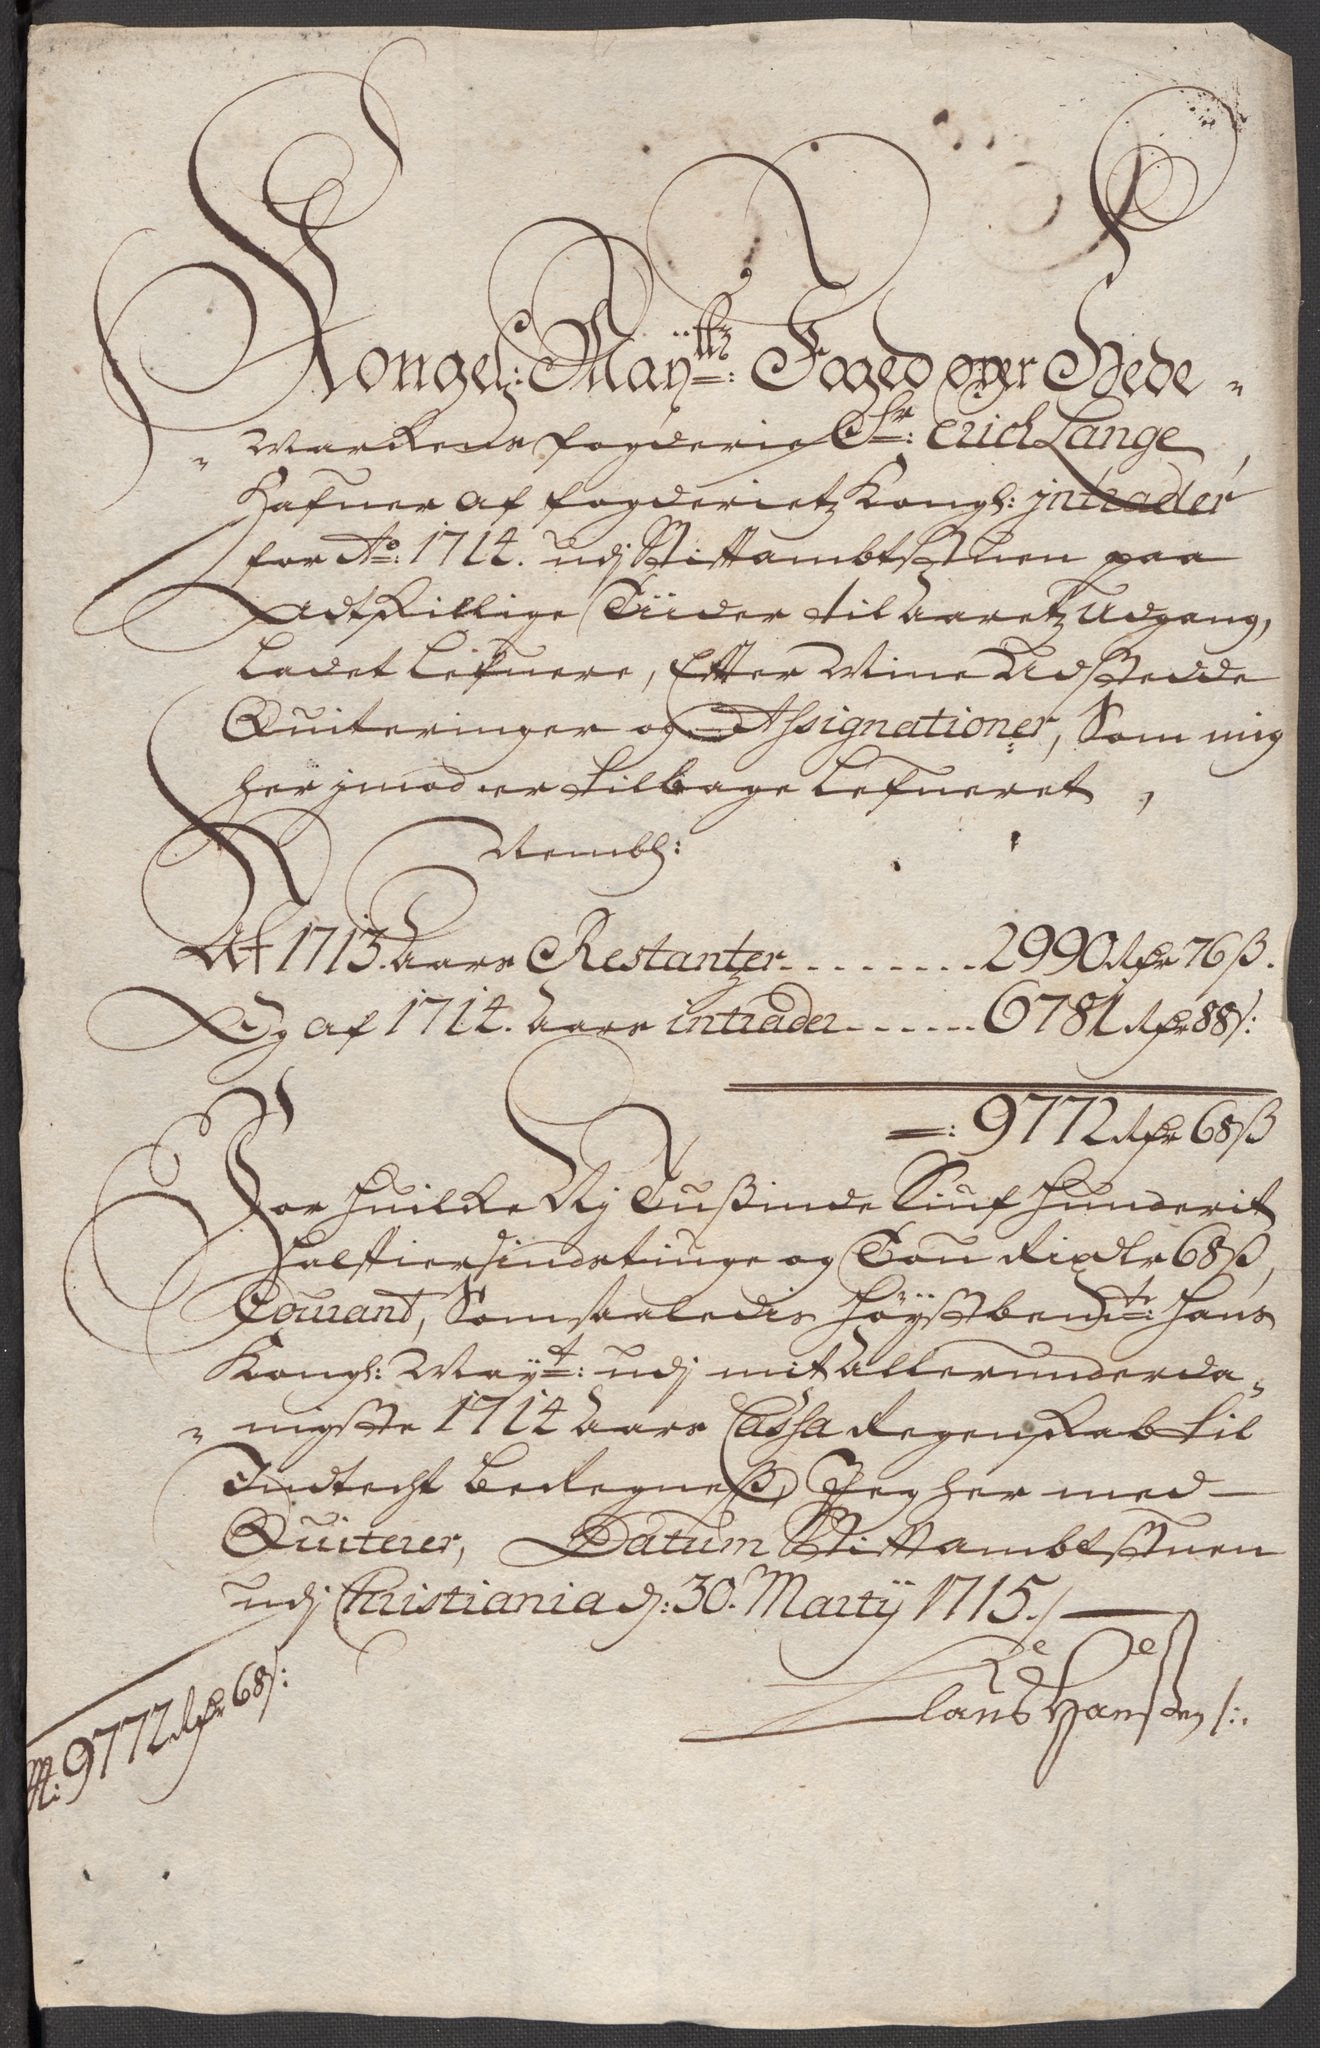 Kongel: Mayttz: Foged over Hede-
"markens fogderie Sr: Erich Lange
Hafuer af fogderietz Kongl: jntrader
for Ao: 1714. udj Stiftambtstuen paa
Adtskillige Tiider til Aaretz Udgang,
Ladet Lefuere, Efter Mine Udstedde
Quiteringer og Assignationer, Som mig
her jmod er tilbage Lefueret,
Nembl:
Af 1713. Aars Restantzer . . . . . . . . . 2990 Rdr 76 ß.
Og af 1714. Aars intrader . . . . . . 6781 Rdr 88 ß:
=: 9772 Rdr 68 ß
For huilke Nj Tußinde Siuf Hunderit
Halffierdsindstiuge og Tou Rixdlr 68 ß,
Courant, Som saaledis Höystbemte: Hans
Kongl: Mayt: udj mit Allerunderda-
"nigste 1714 Aars Cassa Regenskab til
Indtecht beregneß, Jeg her med
Quiterer, Datum Stiftambtstuen
udj Christiania d: 30. Martij 1715./
Claus Hanssen /:.
9772 Rdr 68 ß: